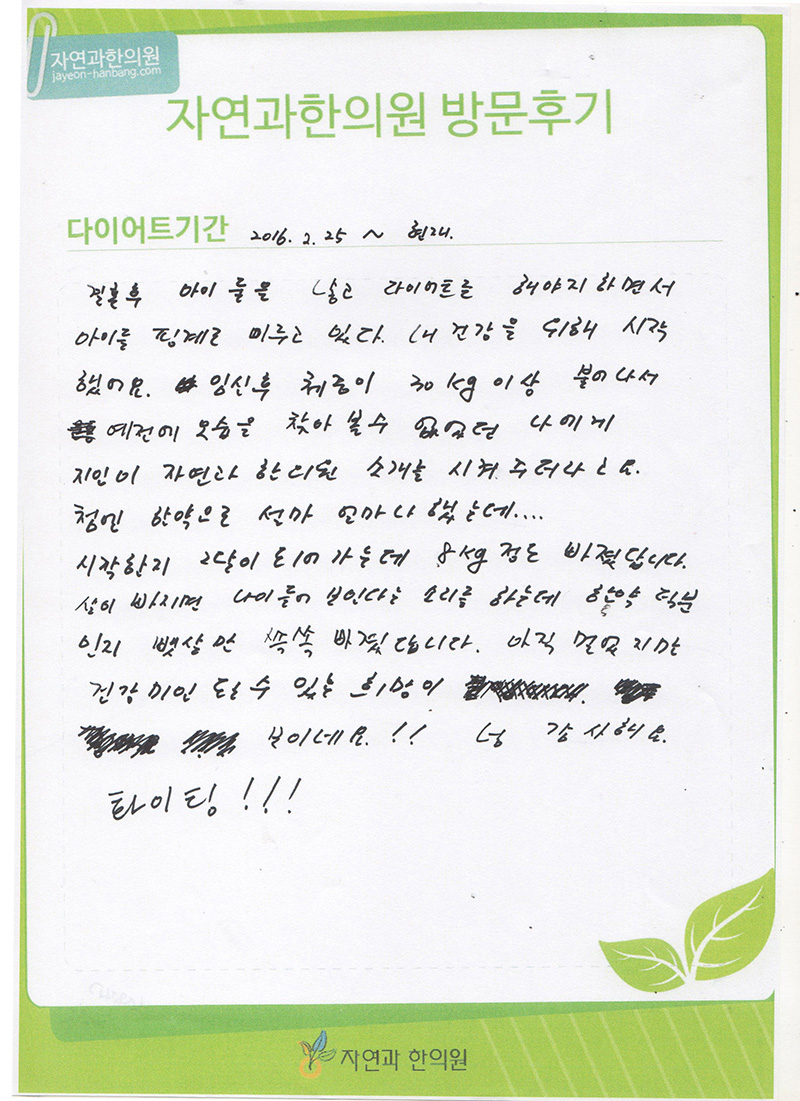 자연과한의원
jayeon-hanbang.com
자연과한의원 방문후기
다이어트기간 2016. 2. 25 ~ 현재.
결혼후 아이 들을 낳고 다이어트를 해야지 하면서
아이들 핑계로 미루고 있다. 내 건강을 위해 시작
했어요. 임신후 체중이 30kg 이상 불어나서
예전에 모습을 찾아 볼수 없었던 나에게
지인이 자연과 한의원 소개를 시켜 주더라구요.
첨엔 한약으로 설마 얼마나 했는데....
시작한지 2달이 되어 가는데 8kg 정도 빠졌답니다.
살이 빠지면 나이들어 보인다는 소리를 하는데 한약 덕분
인지 뱃살만 쏙쏙 빠졌답니다. 아직 멀었지만
건강미인 될 수 있는 희망이
보이네요.!! 넘 감사해요.
화이팅!!!
자연과 한의원